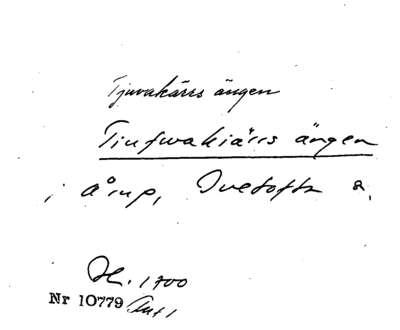 Tjuvakärrs ängen
Tiufwakiärrs ängen
i Årup, Ivetofta s.
Hl. 1700
Nr 10779 Ant 1